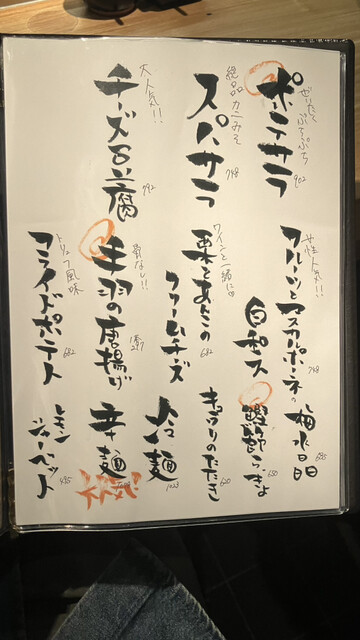 ぜいたく ぷちぷち
ポテサラ 902
絶品カニみそ
スパサラ 748
大人気!!
チーズ豆腐 792
女性人気!!
フルーツとマスカルポーネの
白和え 748
ワインと一緒に
栗とあんこの
クリームチーズ 682
骨なし!!
手羽の唐揚げ 1本 297
トリュフ風味
フライドポテト 682
梅水晶 605
鰹節らっきょ 550
キュウリのたたき
冷麺
辛麺
レモン
シャーベット 495